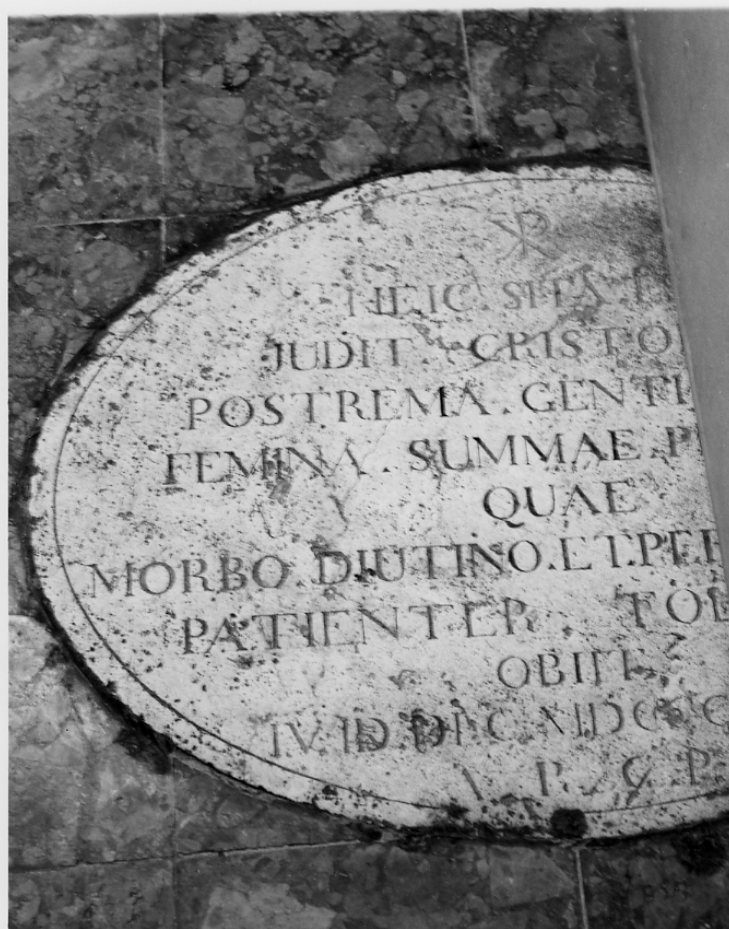 HEIC . SITA E
JUDIT . CRISTO
POSTREMA . GENTI
FEMINA . SUMMAE . P
QUAE
MORBO . DIUTINO . ET . PER
PATIENTER . TOL
OBIIT
IV . ID . DEC . MDCCC
P . C . P